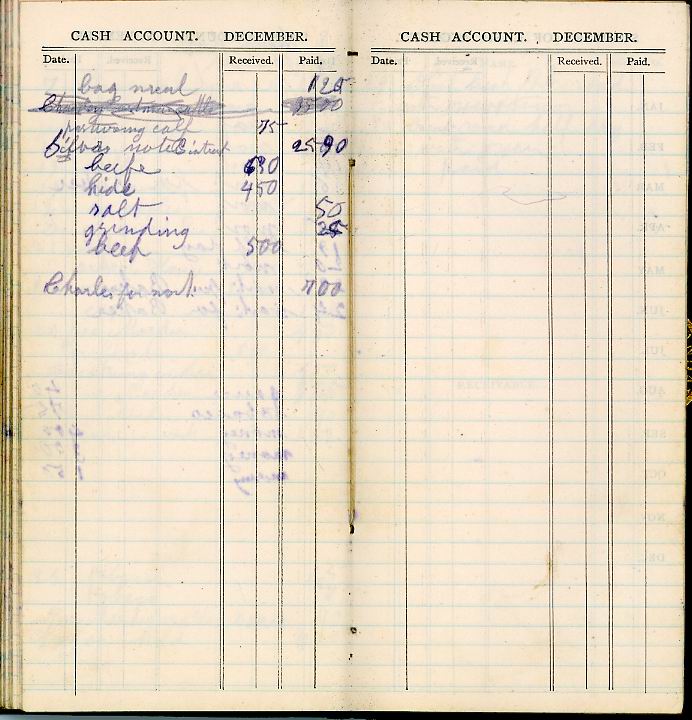 CASH ACCOUNT. DECEMBER.
Date. Received. Paid.
bag meal 1 25
pasturing calf 75
Silvas note & intrest 25 90
beefe 6 30
hide 4 50
salt 50
grinding 25
beef 5 00
Charles for work 7 00
CASH ACCOUNT. DECEMBER.
Date. Received. Paid.